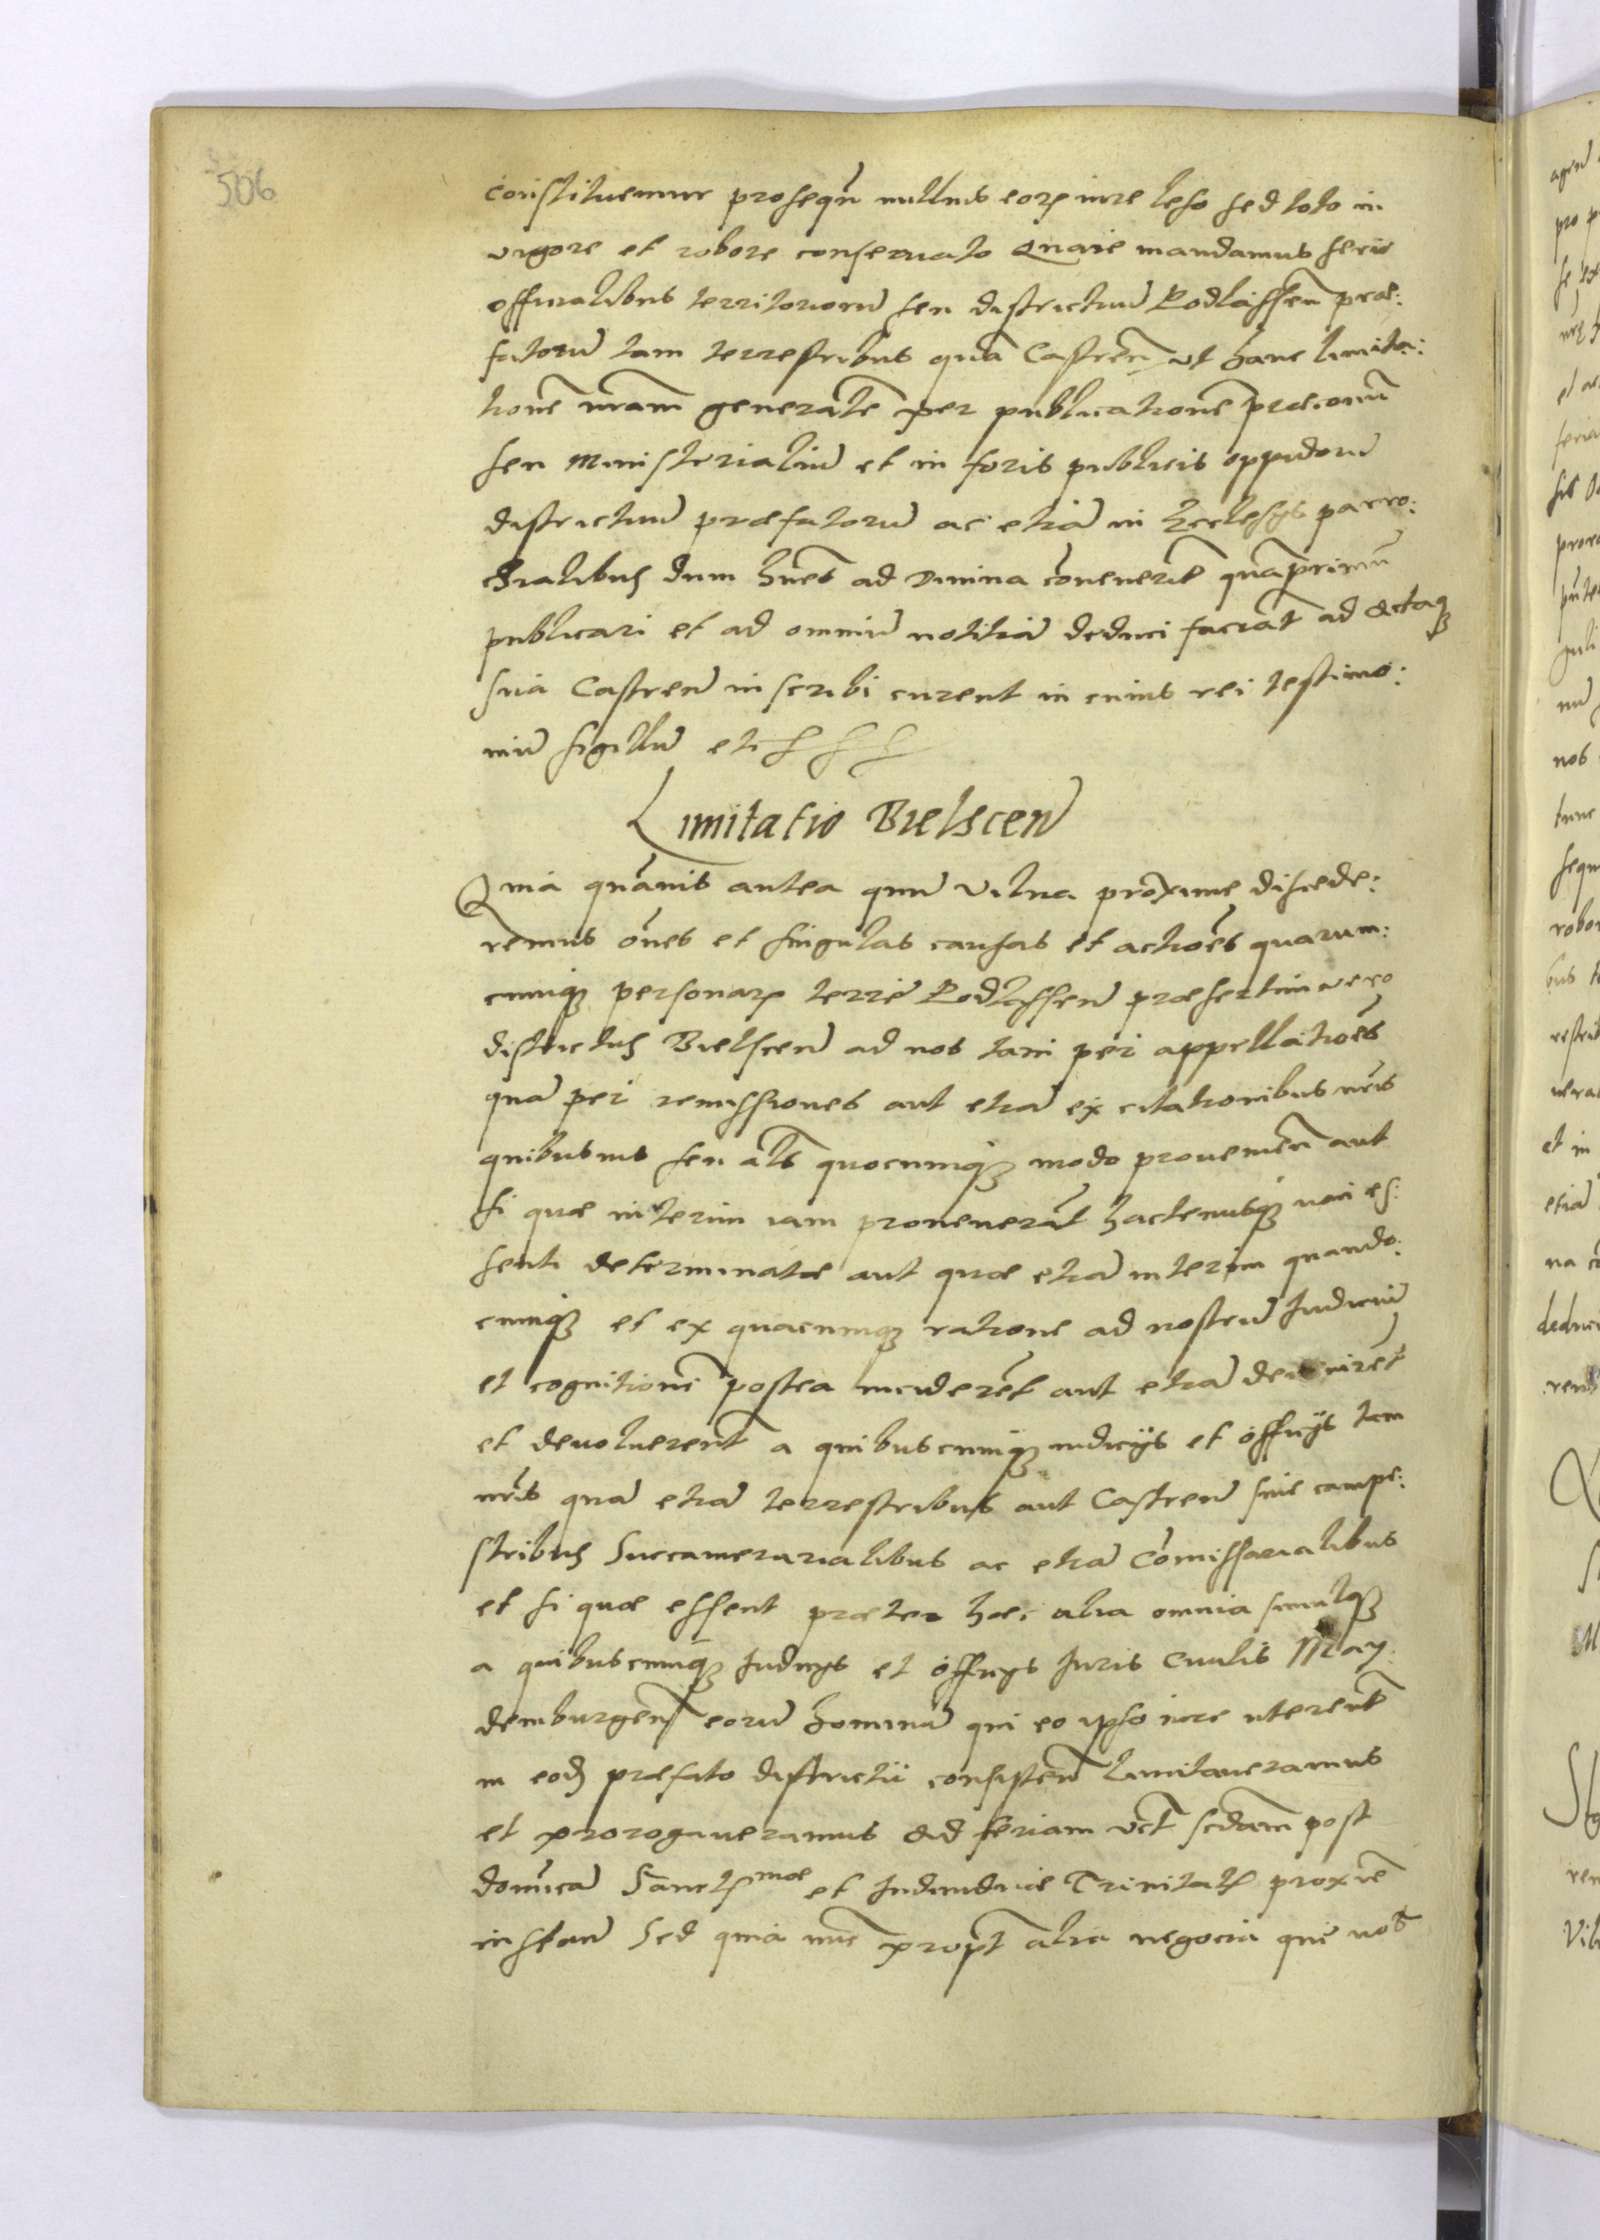 506
constituemur prosequen̄ nullius eorꝫ iure leso sed toto in
vigore et robore conseruato Quare mandamus serio
officialibus territoriorū seu districtuū Podlassen̄ præ:
fatorū tam terrestribus quā Castren̄ ut hanc limita:
tionē nrām generalē per publicationē præconū
seu Ministerialiū et in foris publicis oppidorū
districtuū præfatorū ac etiā in Ecclesijs parro:
chialibus dum hoīes ad Diuina cōuenerīt quāprimū
publicari et ad omniū notitiā deduci faciāt ad actaqꝫ
sua Castren̄ inscribi curent in cuius rei testimo:
niū sigillū etc
Limitatio Bielscen̄
Quia quāuis antea quū Vilna proxime discede:
remus oēs et singulas causas et actiōes quarum:
cunqꝫ personarꝫ terræ Podlassen̄ præsertim vero
districtus Bielscen̄ ad nos tam per appellatiōes
quā per remissiones aut etiā ex citationibus nr̄is
quibusuis seu als̄ quocunqꝫ modo prouenien̄ aut
si quæ interim iam prouenerāt hactenusqꝫ non es:
sent determinatæ aut quæ etiā interim quando:
cunqꝫ et ex quacunqꝫ ratione ad nostrū Iudiciū
et cognitionē postea inciderēt aut etiā deuenirēt
et deuoluerent̄ a quibuscunqꝫ iudicijs et officijs tam
nr̄is quā etiā terrestribus aut Castren̄ siue campe:
stribus Succamerarialibus ac etiā Cōmissarialibus
et si quæ essent præter hæc alia omnia simulqꝫ
a quibuscunqꝫ Iudicijs et officijs Iuris Ciuilis May:
demburgen̄ eorū hominū qui eo ipso iure uterent̄
in eodꝫ præfato districtu consisten̄ limitaueramus
et prorogaueramus ad feriam vc̄t scd̄am post
domīcā Sanctissmæ et Indiuiduæ Trinitatꝫ proxīe
instan̄ Sed quia nūc propt̄ alia negocia quæ nob̄